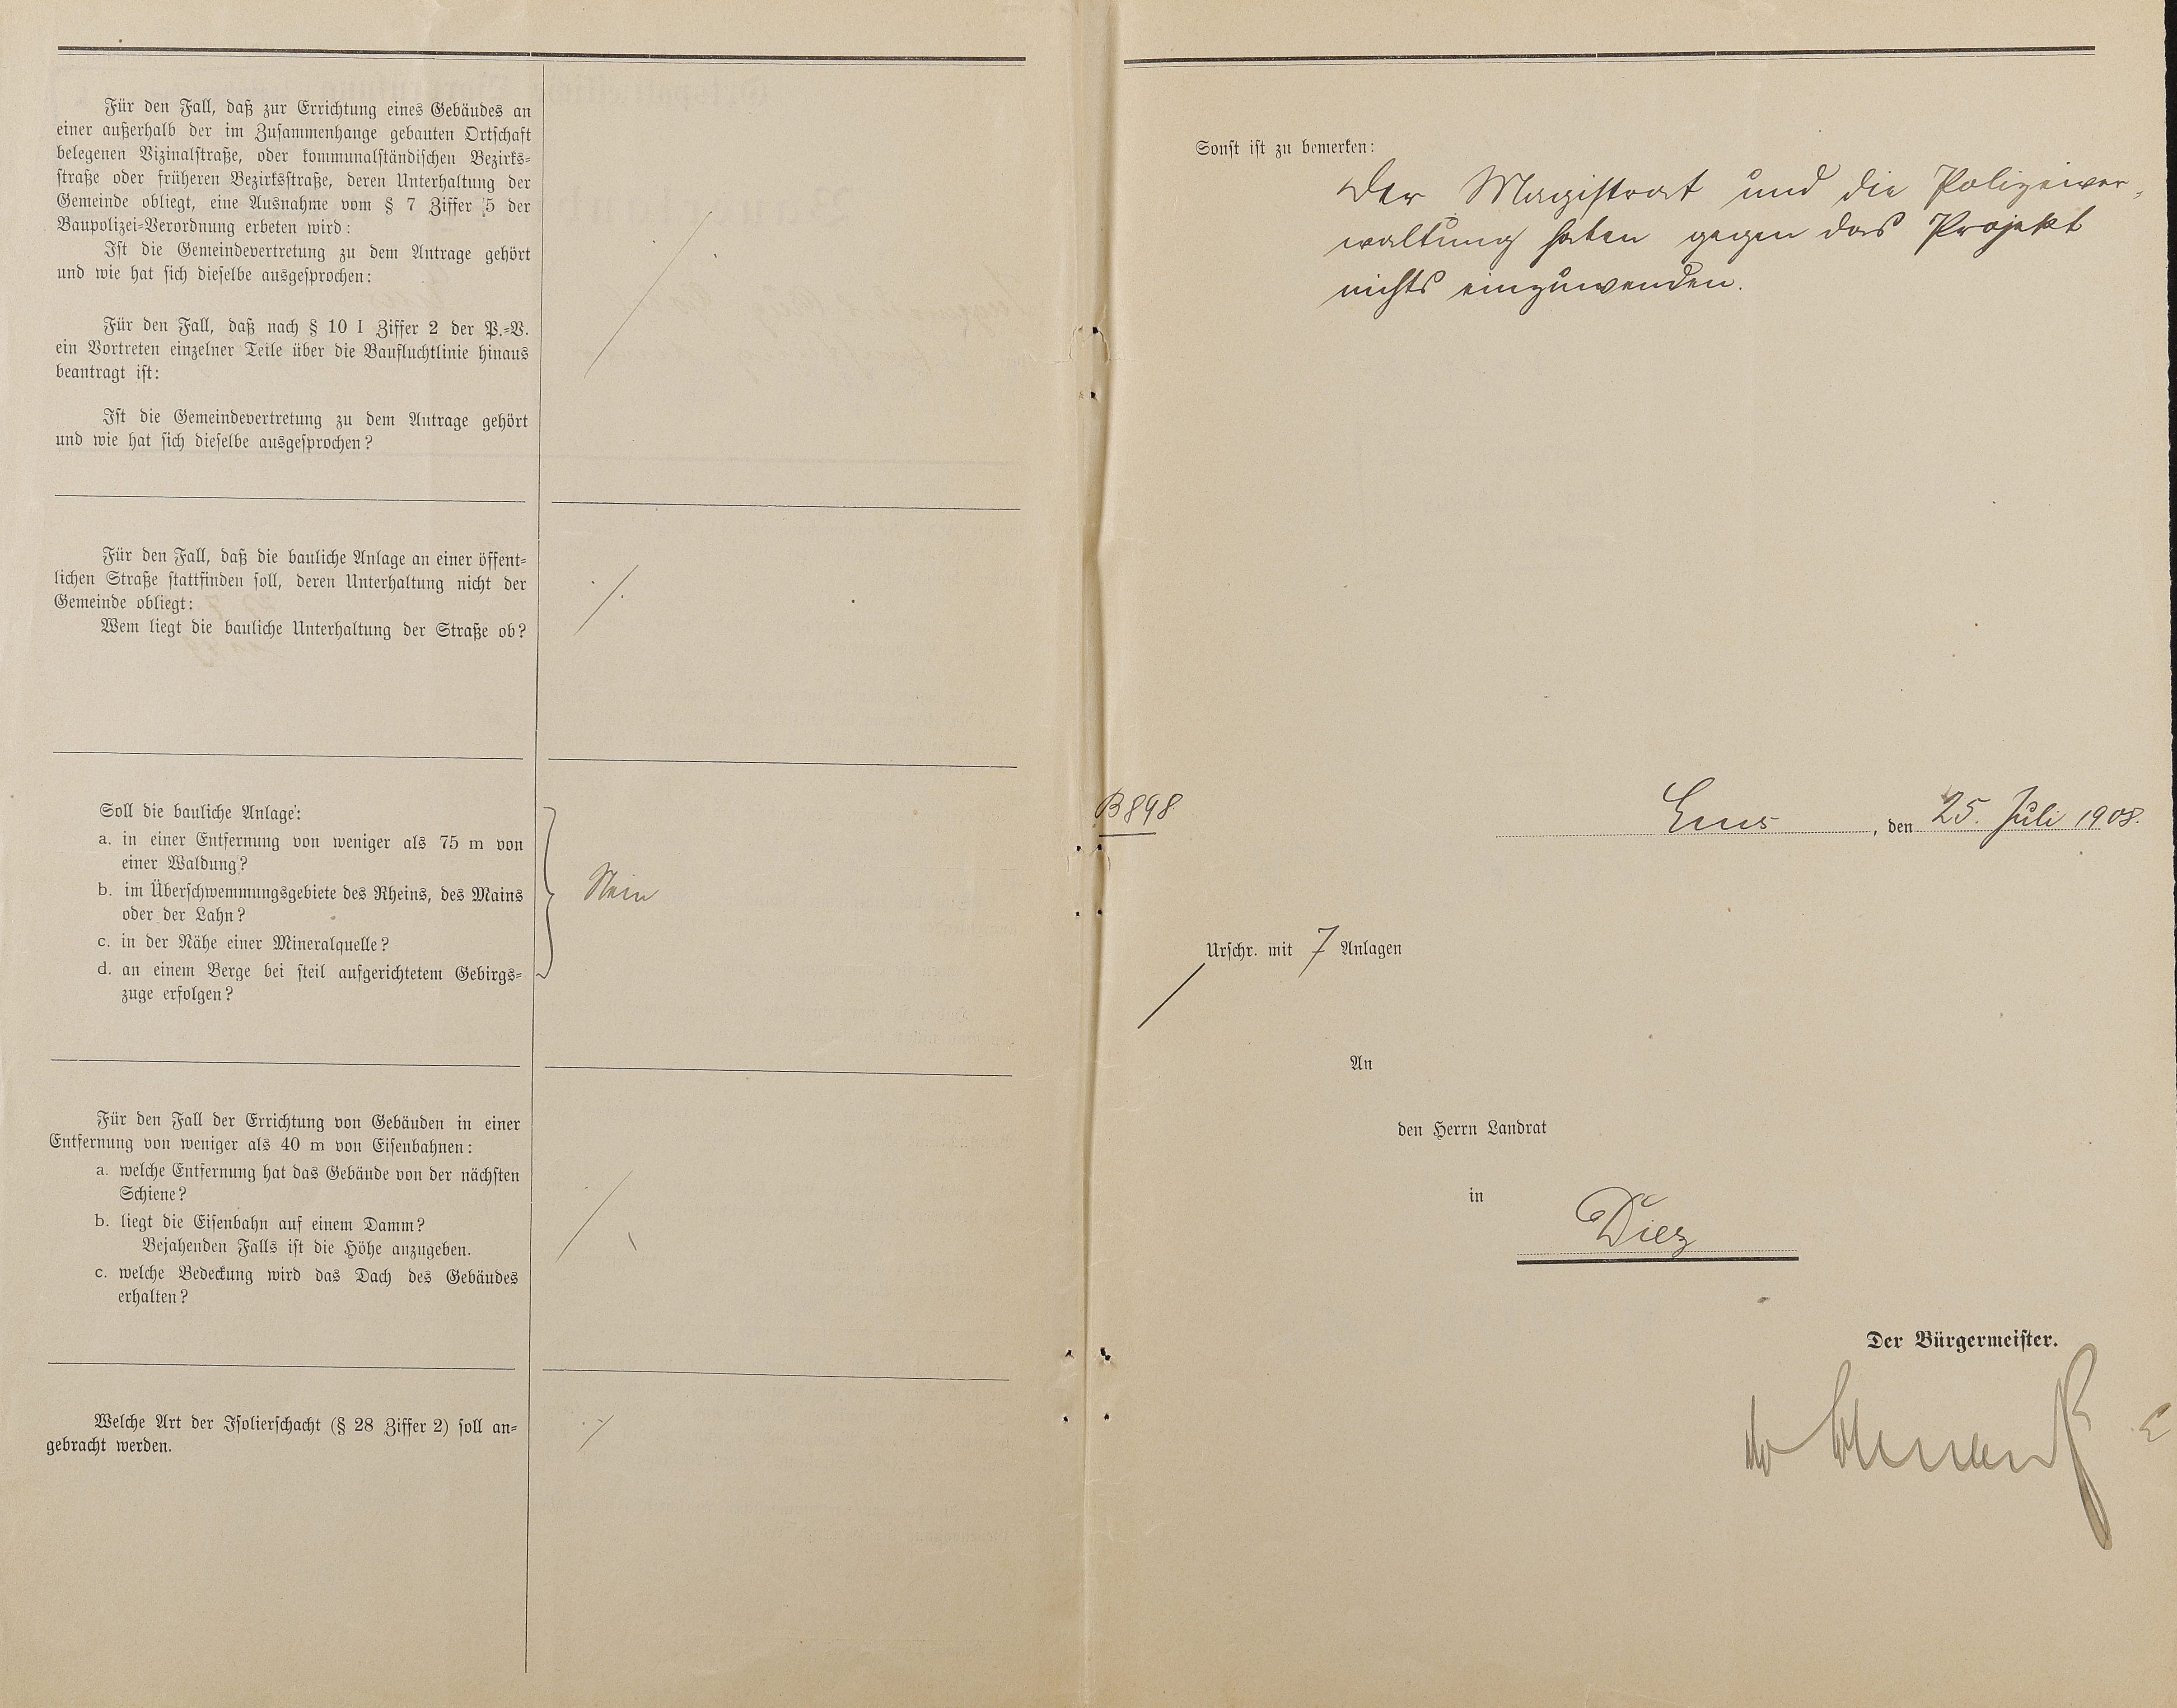 Für den Fall, daß zur Errichtung eines Gebäudes an
einer außerhalb der im Zusammenhange gebauten Ortschaft
belegenen Vizinalstraße, oder kommunalständischen Bezirks-
straße oder früheren Bezirksstraße, deren Unterhaltung der
Gemeinde obliegt, eine Ausnahme vom § 7 Ziffer 5 der
Baupolizei-Verordnung erbeten wird:
Ist die Gemeindevertretung zu dem Antrage gehört
und wie hat sich dieselbe ausgesprochen:
Für den Fall, daß nach § 10 I Ziffer 2 der P.-V.
ein Vortreten einzelner Teile über die Baufluchtlinie hinaus
beantragt ist:
Ist die Gemeindevertretung zu dem Antrage gehört
und wie hat sich dieselbe ausgesprochen?
Für den Fall, daß die bauliche Anlage an einer öffent-
lichen Straße stattfinden soll, deren Unterhaltung nicht der
Gemeinde obliegt:
Wem liegt die bauliche Unterhaltung der Straße ob?
Soll die bauliche Anlage:
a. in einer Entfernung von weniger als 75 m von
einer Waldung?
b. im Überschwemmungsgebiete des Rheins, des Mains
oder der Lahn?
c. in der Nähe einer Mineralquelle?
d. an einem Berge bei steil aufgerichtetem Gebirgs-
zuge erfolgen?
Nein
Für den Fall der Errichtung von Gebäuden in einer
Entfernung von weniger als 40 m von Eisenbahnen:
a. welche Entfernung hat das Gebäude von der nächsten
Schiene?
b. liegt die Eisenbahn auf einem Damm?
Bejahenden Falls ist die Höhe anzugeben.
c. welche Bedeckung wird das Dach des Gebäudes
erhalten?
Welche Art der Isolierschacht (§ 28 Ziffer 2) soll an-
gebracht werden.
Sonst ist zu bemerken:
Der Magistrat und die Polizeiver-
waltung haben gegen das Projekt
nichts einzuwenden.
B 898
Ems, den 25. Juli 1908.
Urschr. mit 7 Anlagen
An
den Herrn Landrat
in
Diez
Der Bürgermeister.